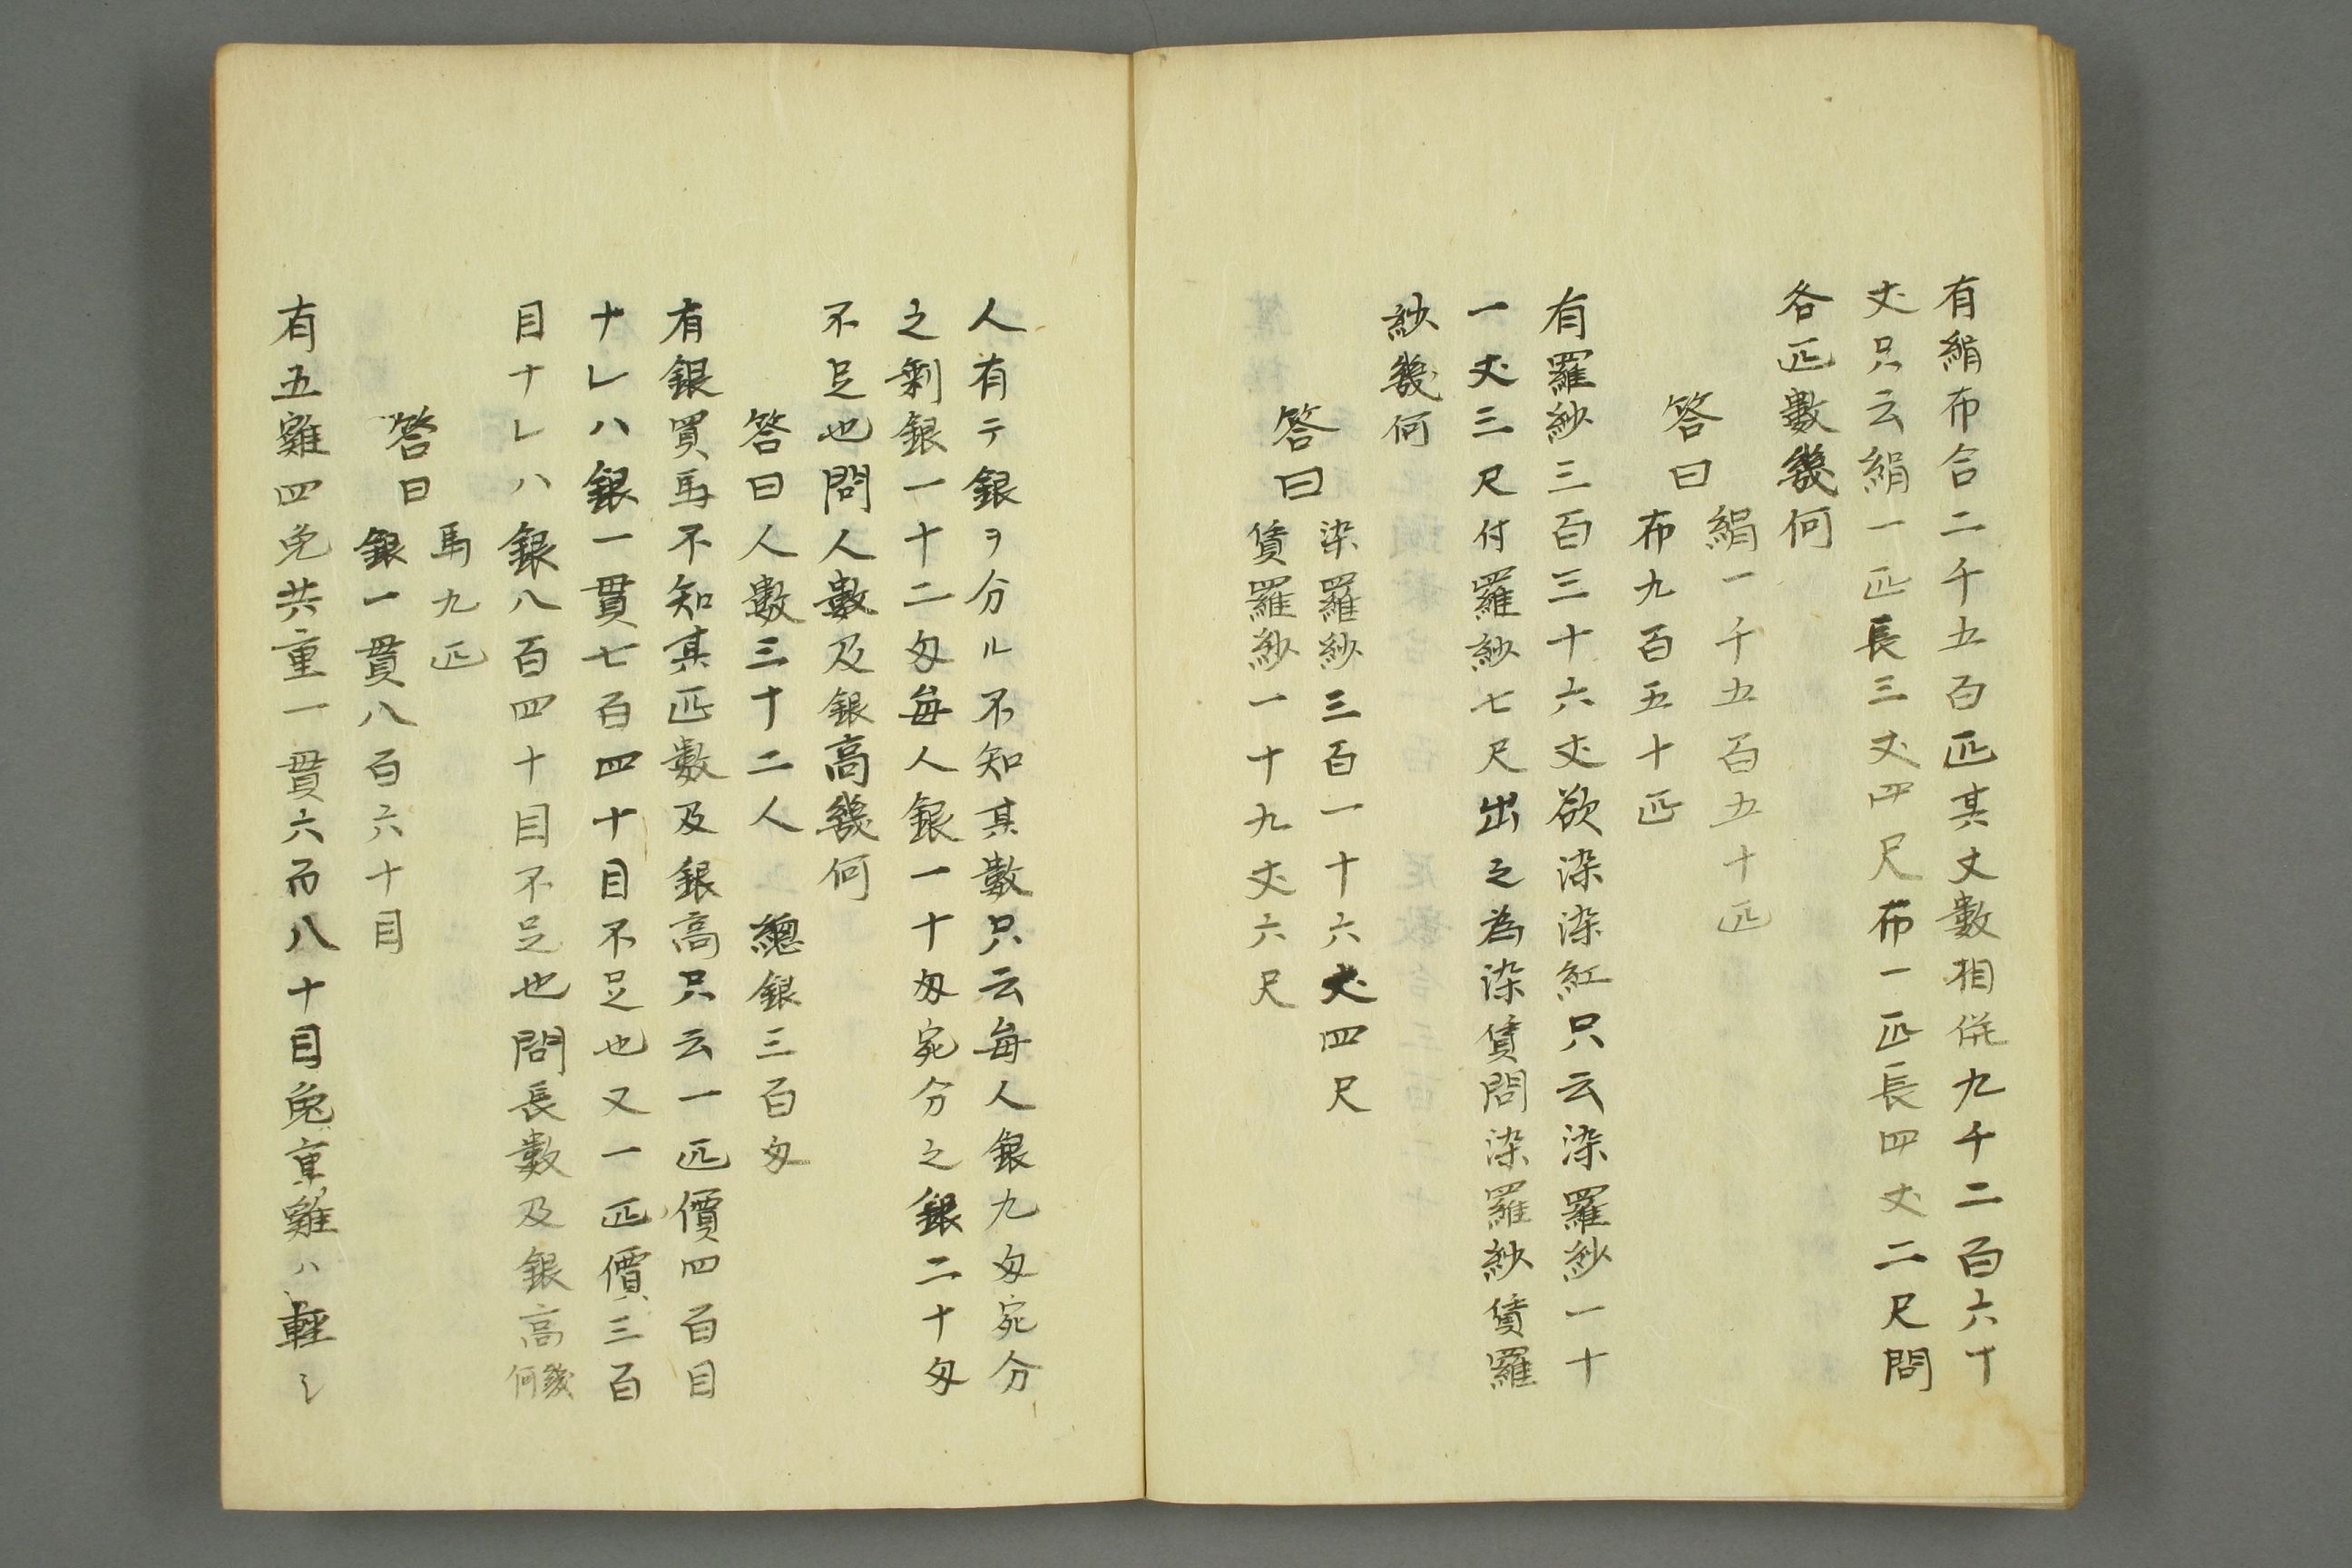 有絹布合二千五百匹其丈數相併九千二百六十
丈只云絹一匹長三丈四尺布一匹長四丈二尺問
各匹數幾何
答曰
絹一千五百五十匹
布九百五十匹
有羅紗三百三十六丈欲染染紅只云染羅紗一十
一丈三尺付羅紗七尺出之為染賃問染羅紗賃羅
紗幾何
答曰
染羅紗三百一十六丈四尺
賃羅紗一十九丈六尺
人有テ銀ヲ分ル不知其數只云每人銀九匁宛分
之剩銀一十二匁每人銀一十匁宛分之銀二十匁
不足也問人數及銀高幾何
答曰人數三十二人 總銀三百匁
有銀買馬不知其匹數及銀高只云一匹價四百目
ナレハ銀一貫七百四十目不足也又一匹價三百
目ナレハ銀八百四十目不足也問長數及銀高幾何
答曰
馬九匹
銀一貫八百六十目
有五雞四兔共重一貫六而八十目兔重雞ハ輕シ